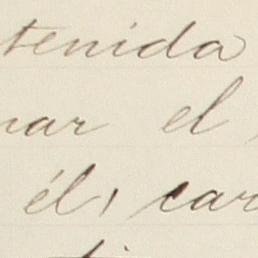 tenida
nar el
él, car